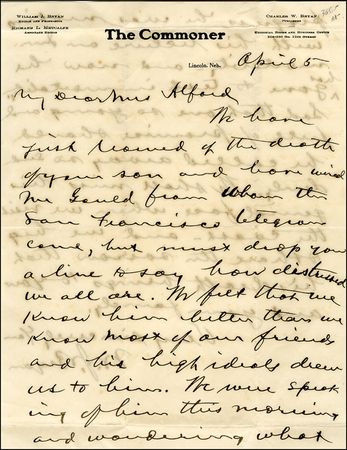 WILLIAM J. BRYAN
EDITOR AND PROPRIETOR
RICHARD L. METCALFE
ASSOCIATE EDITOR
CHARLES W. BRYAN
PUBLISHER
EDITORIAL ROOMS AND BUSINESS OFFICE
The Commoner
Lincoln, Neb.,
April 5
My Dear Mrs Alford
We have
just learned of the death
of your son and have wired
Mr Gould from whom the
San Francisco telegram
came, but must drop you
a line to say how distressed
we all are. We felt that we
know him better than we
know most of our friends
and his high ideals drew
us to him. We were speak
ing of him this morning
and wondering what